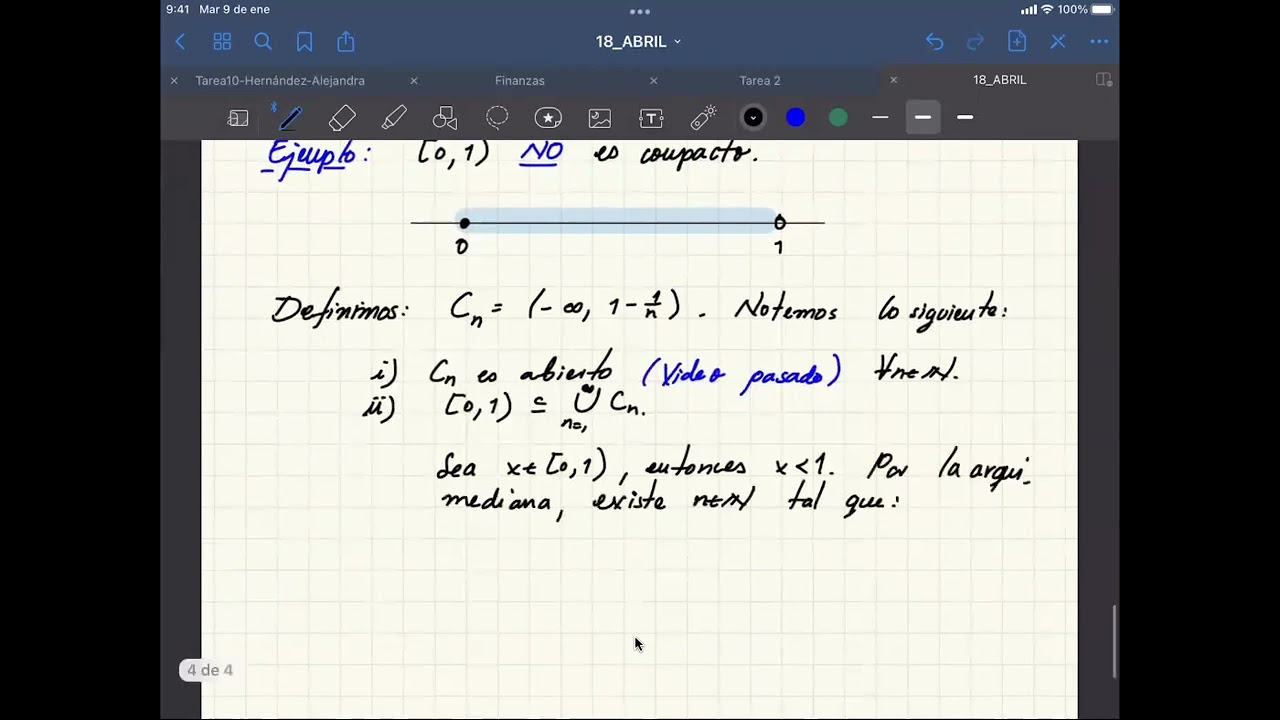 9:41 Mar 9 de ene 100%
18_ABRIL
Tarea10-Hernández-Alejandra Finanzas Tarea 2 18_ABRIL
Ejemplo: [0,1) NO es compacto.
0 1
Definimos: Cₙ = (-∞, 1-1/n). Notemos lo siguiente:
i) Cₙ es abierto (Video pasado) ∀n∈ℕ.
ii) [0,1) ⊆ ∪ₙ₌₁^∞ Cₙ.
Sea x∈[0,1), entonces x<1. Por la arqui-
mediana, existe n∈ℕ tal que:
4 de 4